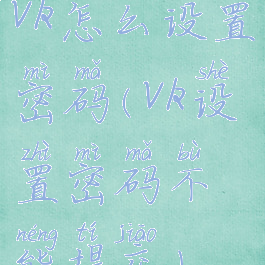 VR怎么设置
mì mǎ shè
密码(VR设
zhì mì mǎ bù
置密码不
néng tí jiāo
能提交)